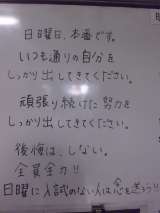 日曜日、本番です。
いつも通りの自分を
しっかり出してきてください。
頑張り続けた努力を
しっかり出してきてください。
後悔は、しない。
全員全力!!
日曜に入試のない人は念を送ろう!!